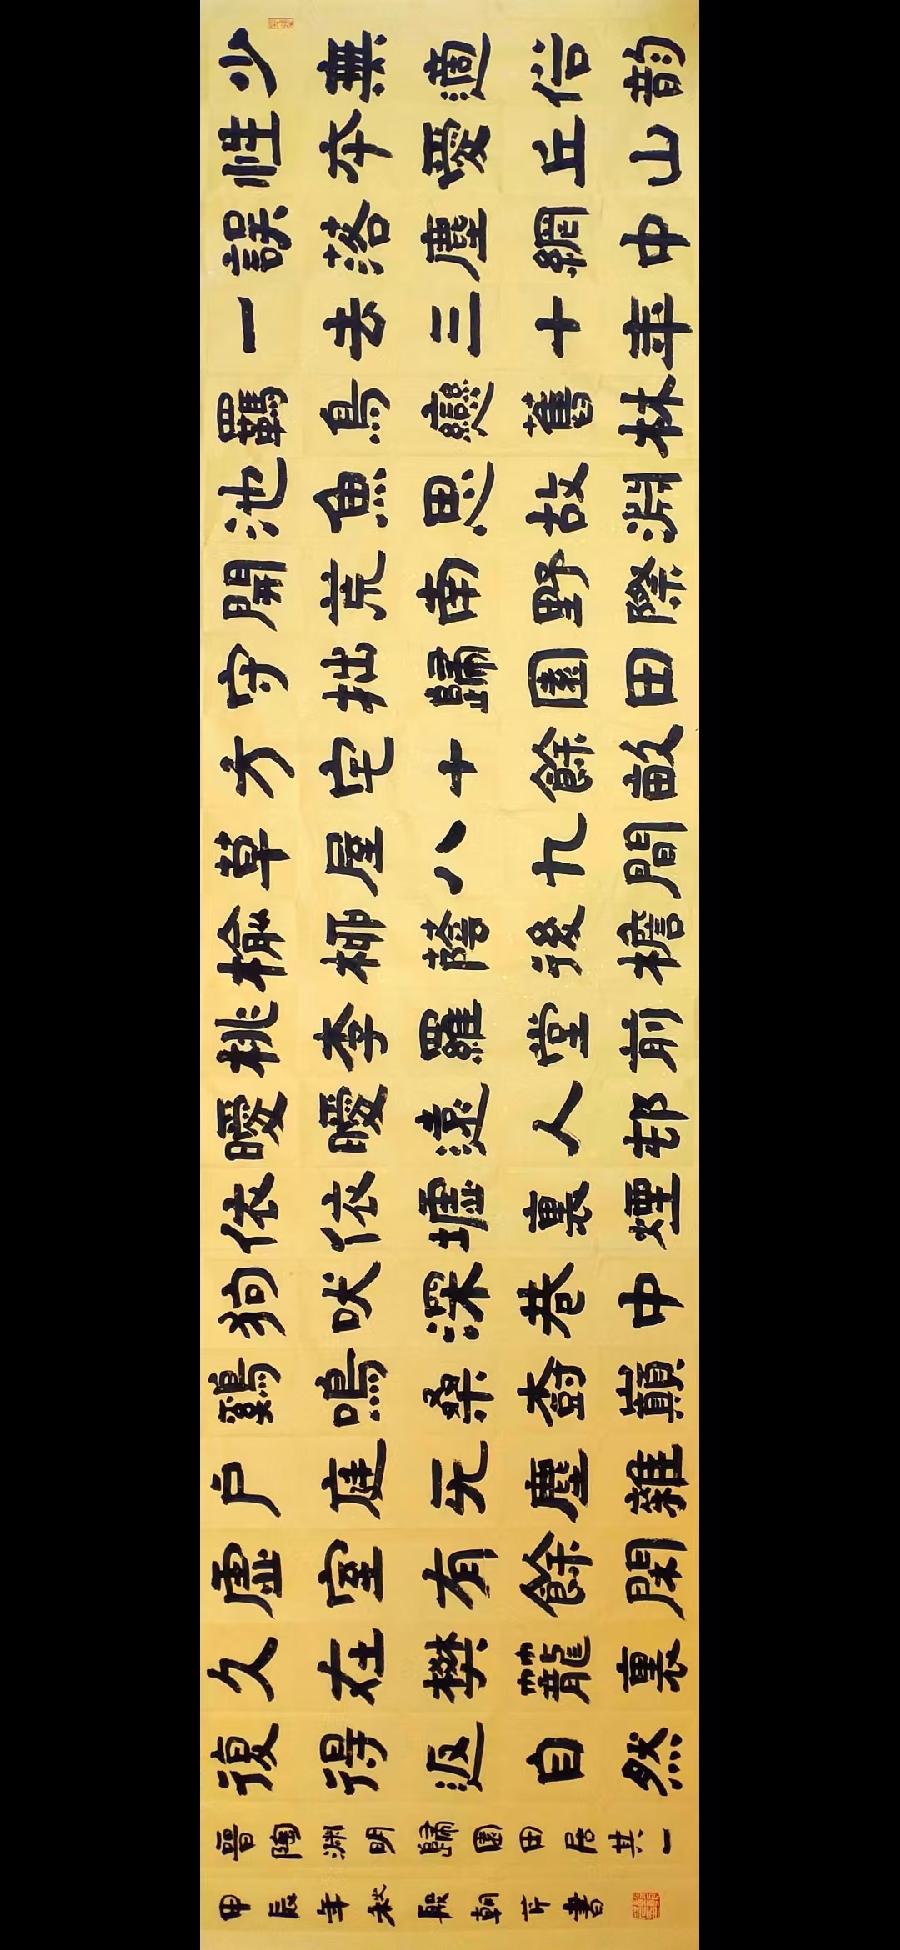 少無適俗韵
性本愛丘山
誤落塵網中
一去三十年
羈鳥戀舊林
池魚思故淵
開荒南野際
守拙歸園田
方宅十餘畝
草屋八九間
榆柳蔭後檐
桃李羅堂前
曖曖遠人邨
依依墟裏煙
狗吠深巷中
鷄鳴桑樹巔
户庭无塵雜
虛室有餘閑
久在樊籠裏
復得返自然
晉陶淵明歸園田居其一
甲辰年秋殷朝書